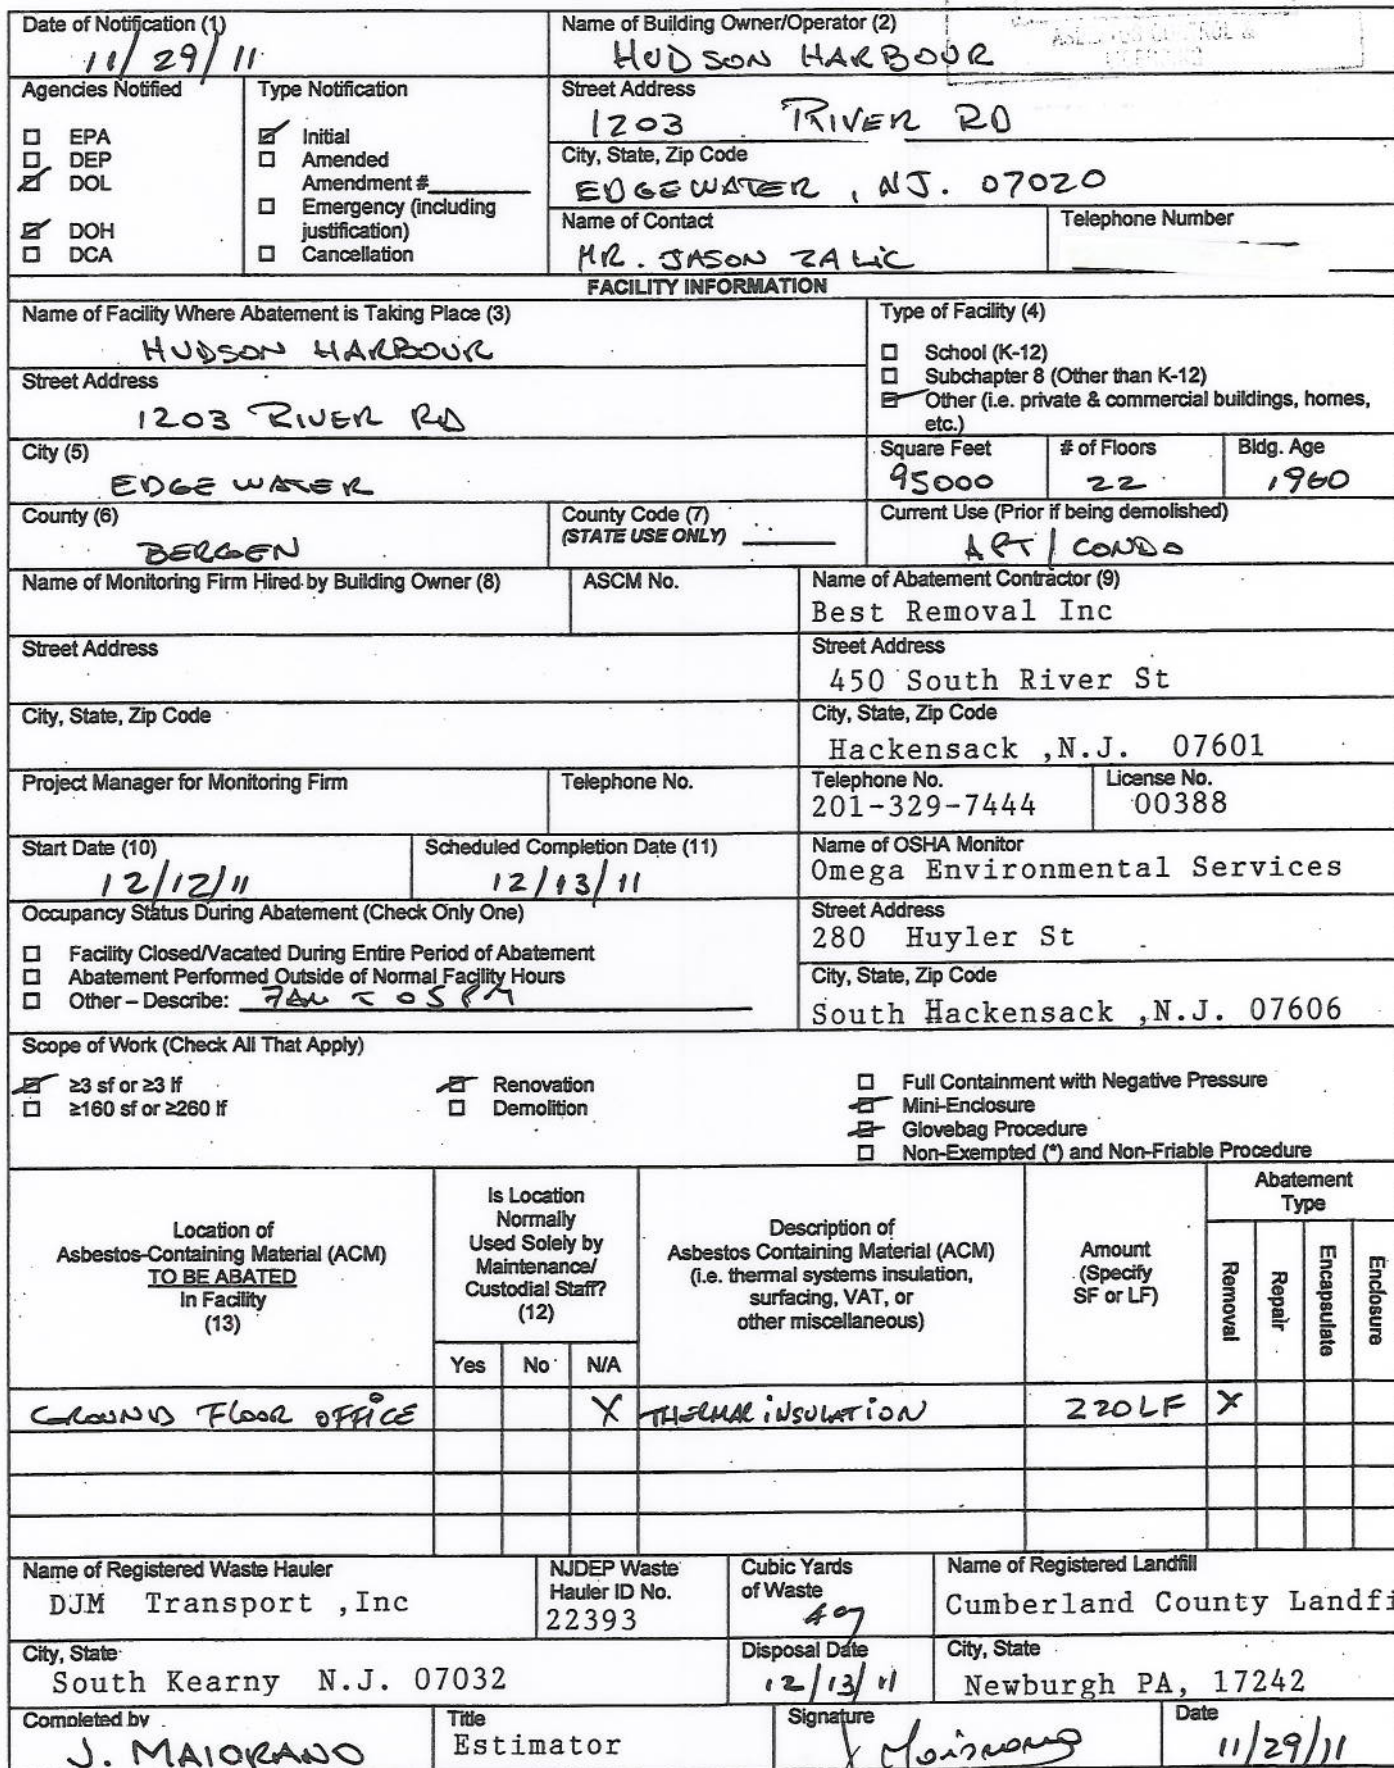 Date of Notification (1)
11/29/11
Name of Building Owner/Operator (2)
HUDSON HARBOUR
Agencies Notified
☐ EPA
☐ DEP
☑ DOL
☑ DOH
☐ DCA
Type Notification
☑ Initial
☐ Amended
Amendment #
☐ Emergency (including
justification)
☐ Cancellation
Street Address
1203 RIVER RD
City, State, Zip Code
EDGEWATER, NJ. 07020
Name of Contact
MR. JASON ZALIC
Telephone Number
FACILITY INFORMATION
Name of Facility Where Abatement is Taking Place (3)
HUDSON HARBOUR
Street Address
1203 RIVER RD
City (5)
EDGEWATER
County (6)
BERGEN
County Code (7)
(STATE USE ONLY)
Type of Facility (4)
☐ School (K-12)
☐ Subchapter 8 (Other than K-12)
☑ Other (i.e. private & commercial buildings, homes,
etc.)
Square Feet
95000
# of Floors
22
Bldg. Age
1960
Current Use (Prior if being demolished)
APT/CONDO
Name of Monitoring Firm Hired by Building Owner (8)
ASCM No.
Street Address
City, State, Zip Code
Project Manager for Monitoring Firm
Telephone No.
Name of Abatement Contractor (9)
Best Removal Inc
Street Address
450 South River St
City, State, Zip Code
Hackensack ,N.J. 07601
Telephone No.
201-329-7444
License No.
00388
Start Date (10)
12/12/11
Scheduled Completion Date (11)
12/13/11
Name of OSHA Monitor
Omega Environmental Services
Occupancy Status During Abatement (Check Only One)
☐ Facility Closed/Vacated During Entire Period of Abatement
☐ Abatement Performed Outside of Normal Facility Hours
☐ Other – Describe: 7AM TO 5PM
Street Address
280 Huyler St
City, State, Zip Code
South Hackensack ,N.J. 07606
Scope of Work (Check All That Apply)
☑ ≥3 sf or ≥3 lf
☐ ≥160 sf or ≥260 lf
☑ Renovation
☐ Demolition
☐ Full Containment with Negative Pressure
☑ Mini-Enclosure
☑ Glovebag Procedure
☐ Non-Exempted (*) and Non-Friable Procedure
Location of
Asbestos-Containing Material (ACM)
TO BE ABATED
In Facility
(13)
Is Location
Normally
Used Solely by
Maintenance/
Custodial Staff?
(12)
Yes No N/A
Description of
Asbestos Containing Material (ACM)
(i.e. thermal systems insulation,
surfacing, VAT, or
other miscellaneous)
Amount
(Specify
SF or LF)
Abatement
Type
Removal
Repair
Encapsulate
Enclosure
GROUND FLOOR OFFICE X THERMAL INSULATION 220 LF X
Name of Registered Waste Hauler
DJM Transport ,Inc
NJDEP Waste
Hauler ID No.
22393
Cubic Yards
of Waste
Name of Registered Landfill
Cumberland County Landfi
City, State
South Kearny N.J. 07032
Disposal Date
12/13/11
City, State
Newburgh PA, 17242
Completed by
J. MAIORANO
Title
Estimator
Signature
Date
11/29/11